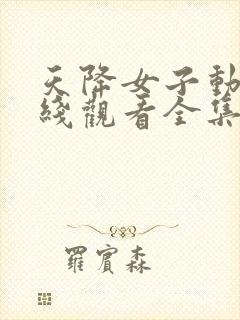 天降女子動
綫觀看全集
羅賓森